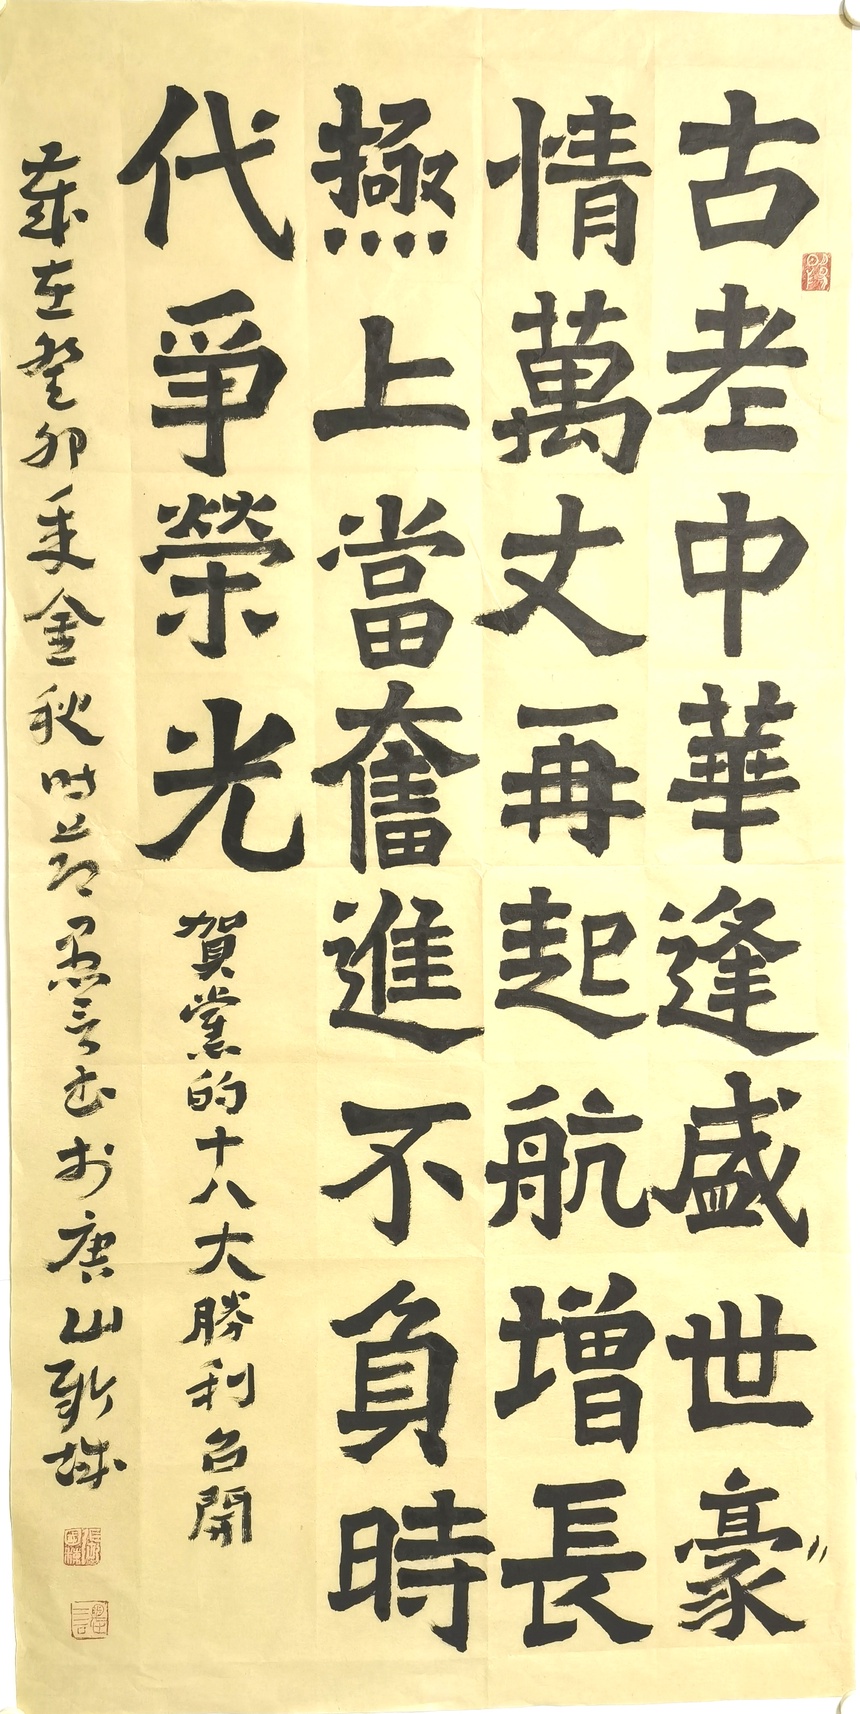 古老中華逢盛世豪〃
情萬丈再起航增長
極上當奮進不負時
代爭榮光
賀黨的十八大勝利召開
歲在癸卯年金秋时节愚言书於唐山新城